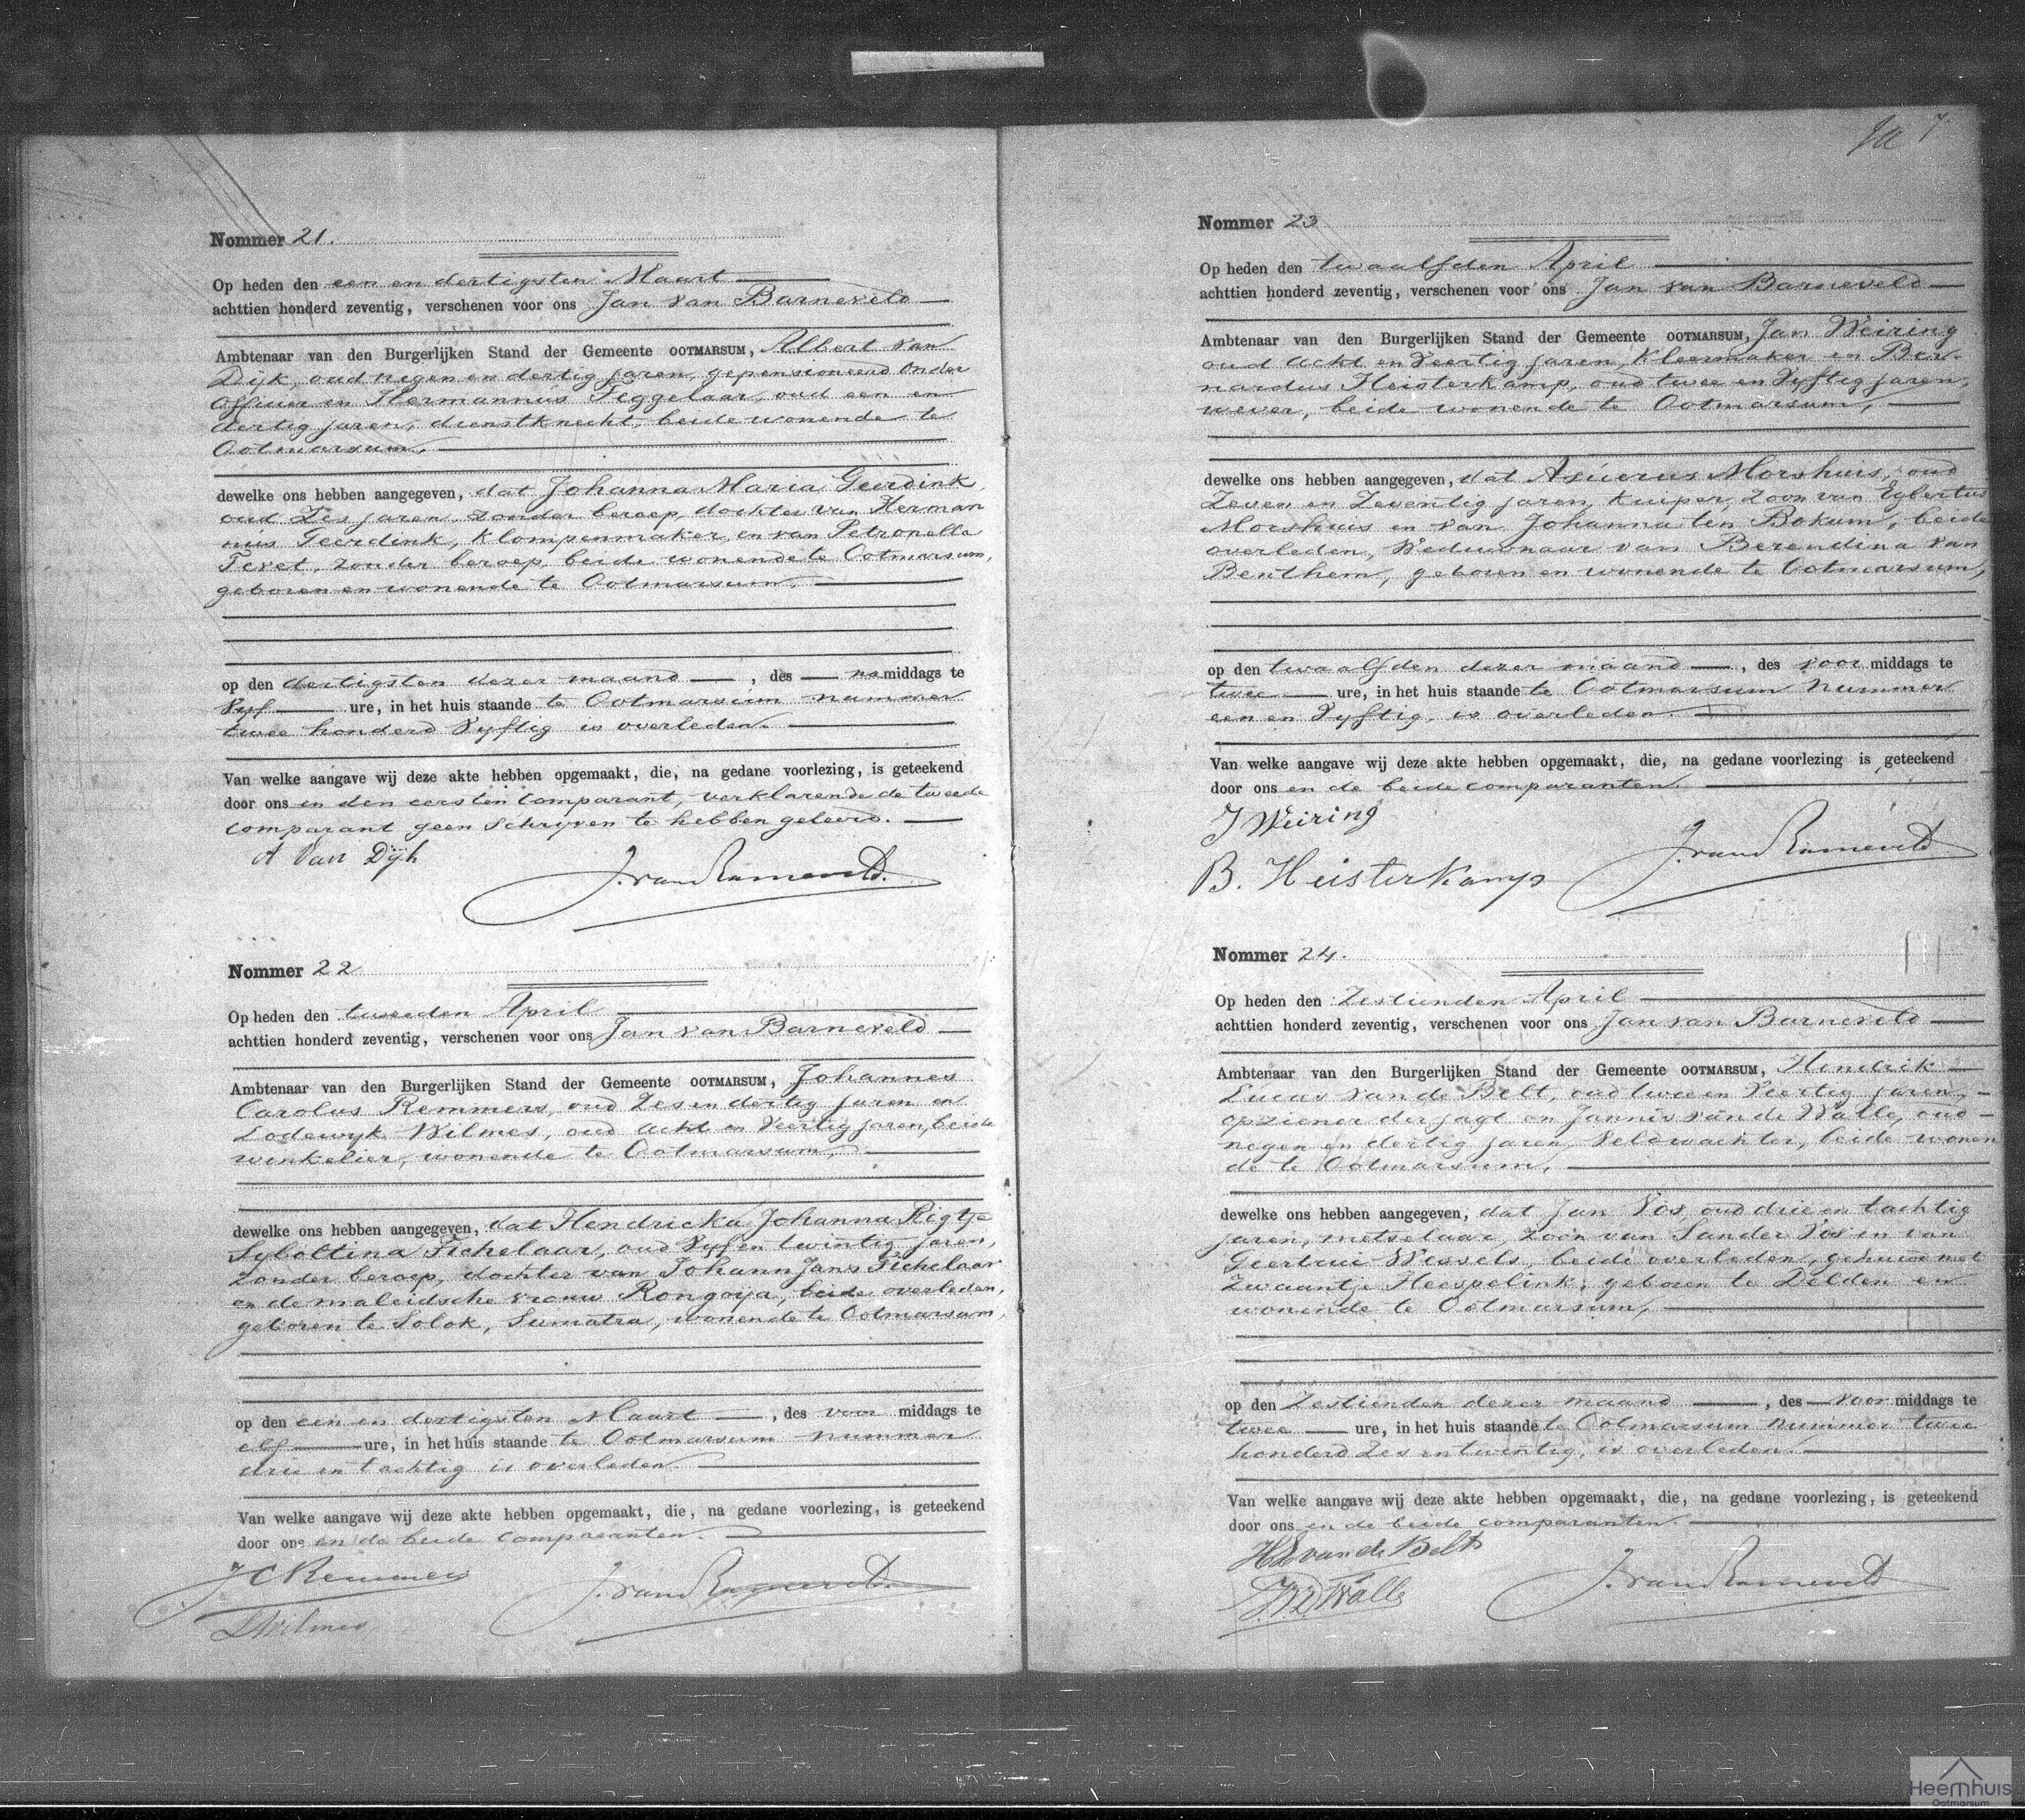 Nommer 21.
Op heden den een en dertigsten Maart
achttien honderd zeventig, verschenen voor ons Jan van Barneveld
Ambtenaar van den Burgerlijken Stand der Gemeente OOTMARSUM, Albert van
Dijk, oud negen en dertig jaren, gepensioneerd onder
officier en Hermannus Tiggelaar, oud een en
dertig jaren, dienstknecht, beide wonende te
Ootmarsum,
dewelke ons hebben aangegeven, dat Johanna Maria Geerdink
oud Zes jaren, zonder beroep, dochter van Herman
nus Geerdink, klompenmaker, en van Petronella
zonder beroep, beide wonende te Ootmarsum,
geboren en wonende te Ootmarsum,
op den dertigsten dezer maand, des na middags te
Vyf ure, in het huis staande te Ootmarsum nummer
twee honderd Vyftig is overleden.
Van welke aangave wij deze akte hebben opgemaakt, die, na gedane voorlezing, is geteekend
door ons en den eersten comparant, verklarende de tweede
comparant geen schryven te hebben geleerd.
A Van Dijk
J. van Barneveld.
Nommer 22
Op heden den tweeden April
achttien honderd zeventig, verschenen voor ons Jan van Barneveld
Ambtenaar van den Burgerlijken Stand der Gemeente OOTMARSUM, Johannes
Carolus Remmers, oud Zes en dertig jaren en
Lodewyk Wilmes, oud acht en Veertig jaren, beide
winkelier, wonende te Ootmarsum,
dewelke ons hebben aangegeven, dat Hendricka Johanna Rigtje
Syboltina Tichelaar, oud Vyf en twintig jaren,
zonder beroep, dochter van Johann Jans Tichelaar
en de maleidsche vrouw Rongoya, beide overleden,
geboren te Solok, Sumatra, wonende te Ootmarsum,
op den een en dertigsten Maart, des voor middags te
elf ure, in het huis staande te Ootmarsum nummer
drie en tachtig is overleden.
Van welke aangave wij deze akte hebben opgemaakt, die, na gedane voorlezing, is geteekend
door ons en de beide comparanten.
J C Remmers
J. van Barneveld.
L Wilmes
7
Nommer 23
Op heden den twaalfden April
achttien honderd zeventig, verschenen voor ons Jan van Barneveld
Ambtenaar van den Burgerlijken Stand der Gemeente OOTMARSUM, Jan Weiring
oud acht en Veertig jaren, Kleermaker en Ber-
nardus Heisterkamp, oud twee en Vyftig jaren,
wever, beide wonende te Ootmarsum,
dewelke ons hebben aangegeven, dat Asuerus Morshuis, oud
Zeven en Zeventig jaren, Kuiper, Zoon van Egbertus
Morshuis en van Johanna ten Bokum, beide
overleden, Weduwnaar van Berendina van
Benthem, geboren en wonende te Ootmarsum,
op den twaalfden dezer maand, des voor middags te
twee ure, in het huis staande te Ootmarsum nummer
een en Vyftig, is overleden.
Van welke aangave wij deze akte hebben opgemaakt, die, na gedane voorlezing is geteekend
door ons en de beide comparanten.
J Weiring
J. van Barneveld
B. Heisterkamp
Nommer 24.
Op heden den Zestienden April
achttien honderd zeventig, verschenen voor ons Jan van Barneveld
Ambtenaar van den Burgerlijken Stand der Gemeente OOTMARSUM, Hendrik
Lucas van de Belt, oud twee en Veertig jaren,
opziener der jagt en Jannis van de Walle, oud
negen en dertig jaren, Veldwachter, beide wonen
de te Ootmarsum,
dewelke ons hebben aangegeven, dat Jan Vos oud drie en tachtig
jaren, metselaar, zoon van Sander Vos en van
Geertrui Wessels, beide overleden, gehuwd met
Zwaantje Heespelink, geboren te Delden en
wonende te Ootmarsum,
op den Zestienden dezer maand, des voor middags te
twee ure, in het huis staande te Ootmarsum nummer twee
honderd Zes en twintig, is overleden.
Van welke aangave wij deze akte hebben opgemaakt, die, na gedane voorlezing, is geteekend
door ons en de beide comparanten.
HL van de Belt
J. van Barneveld
J. v d Walle
Heemhuis
Ootmarsum